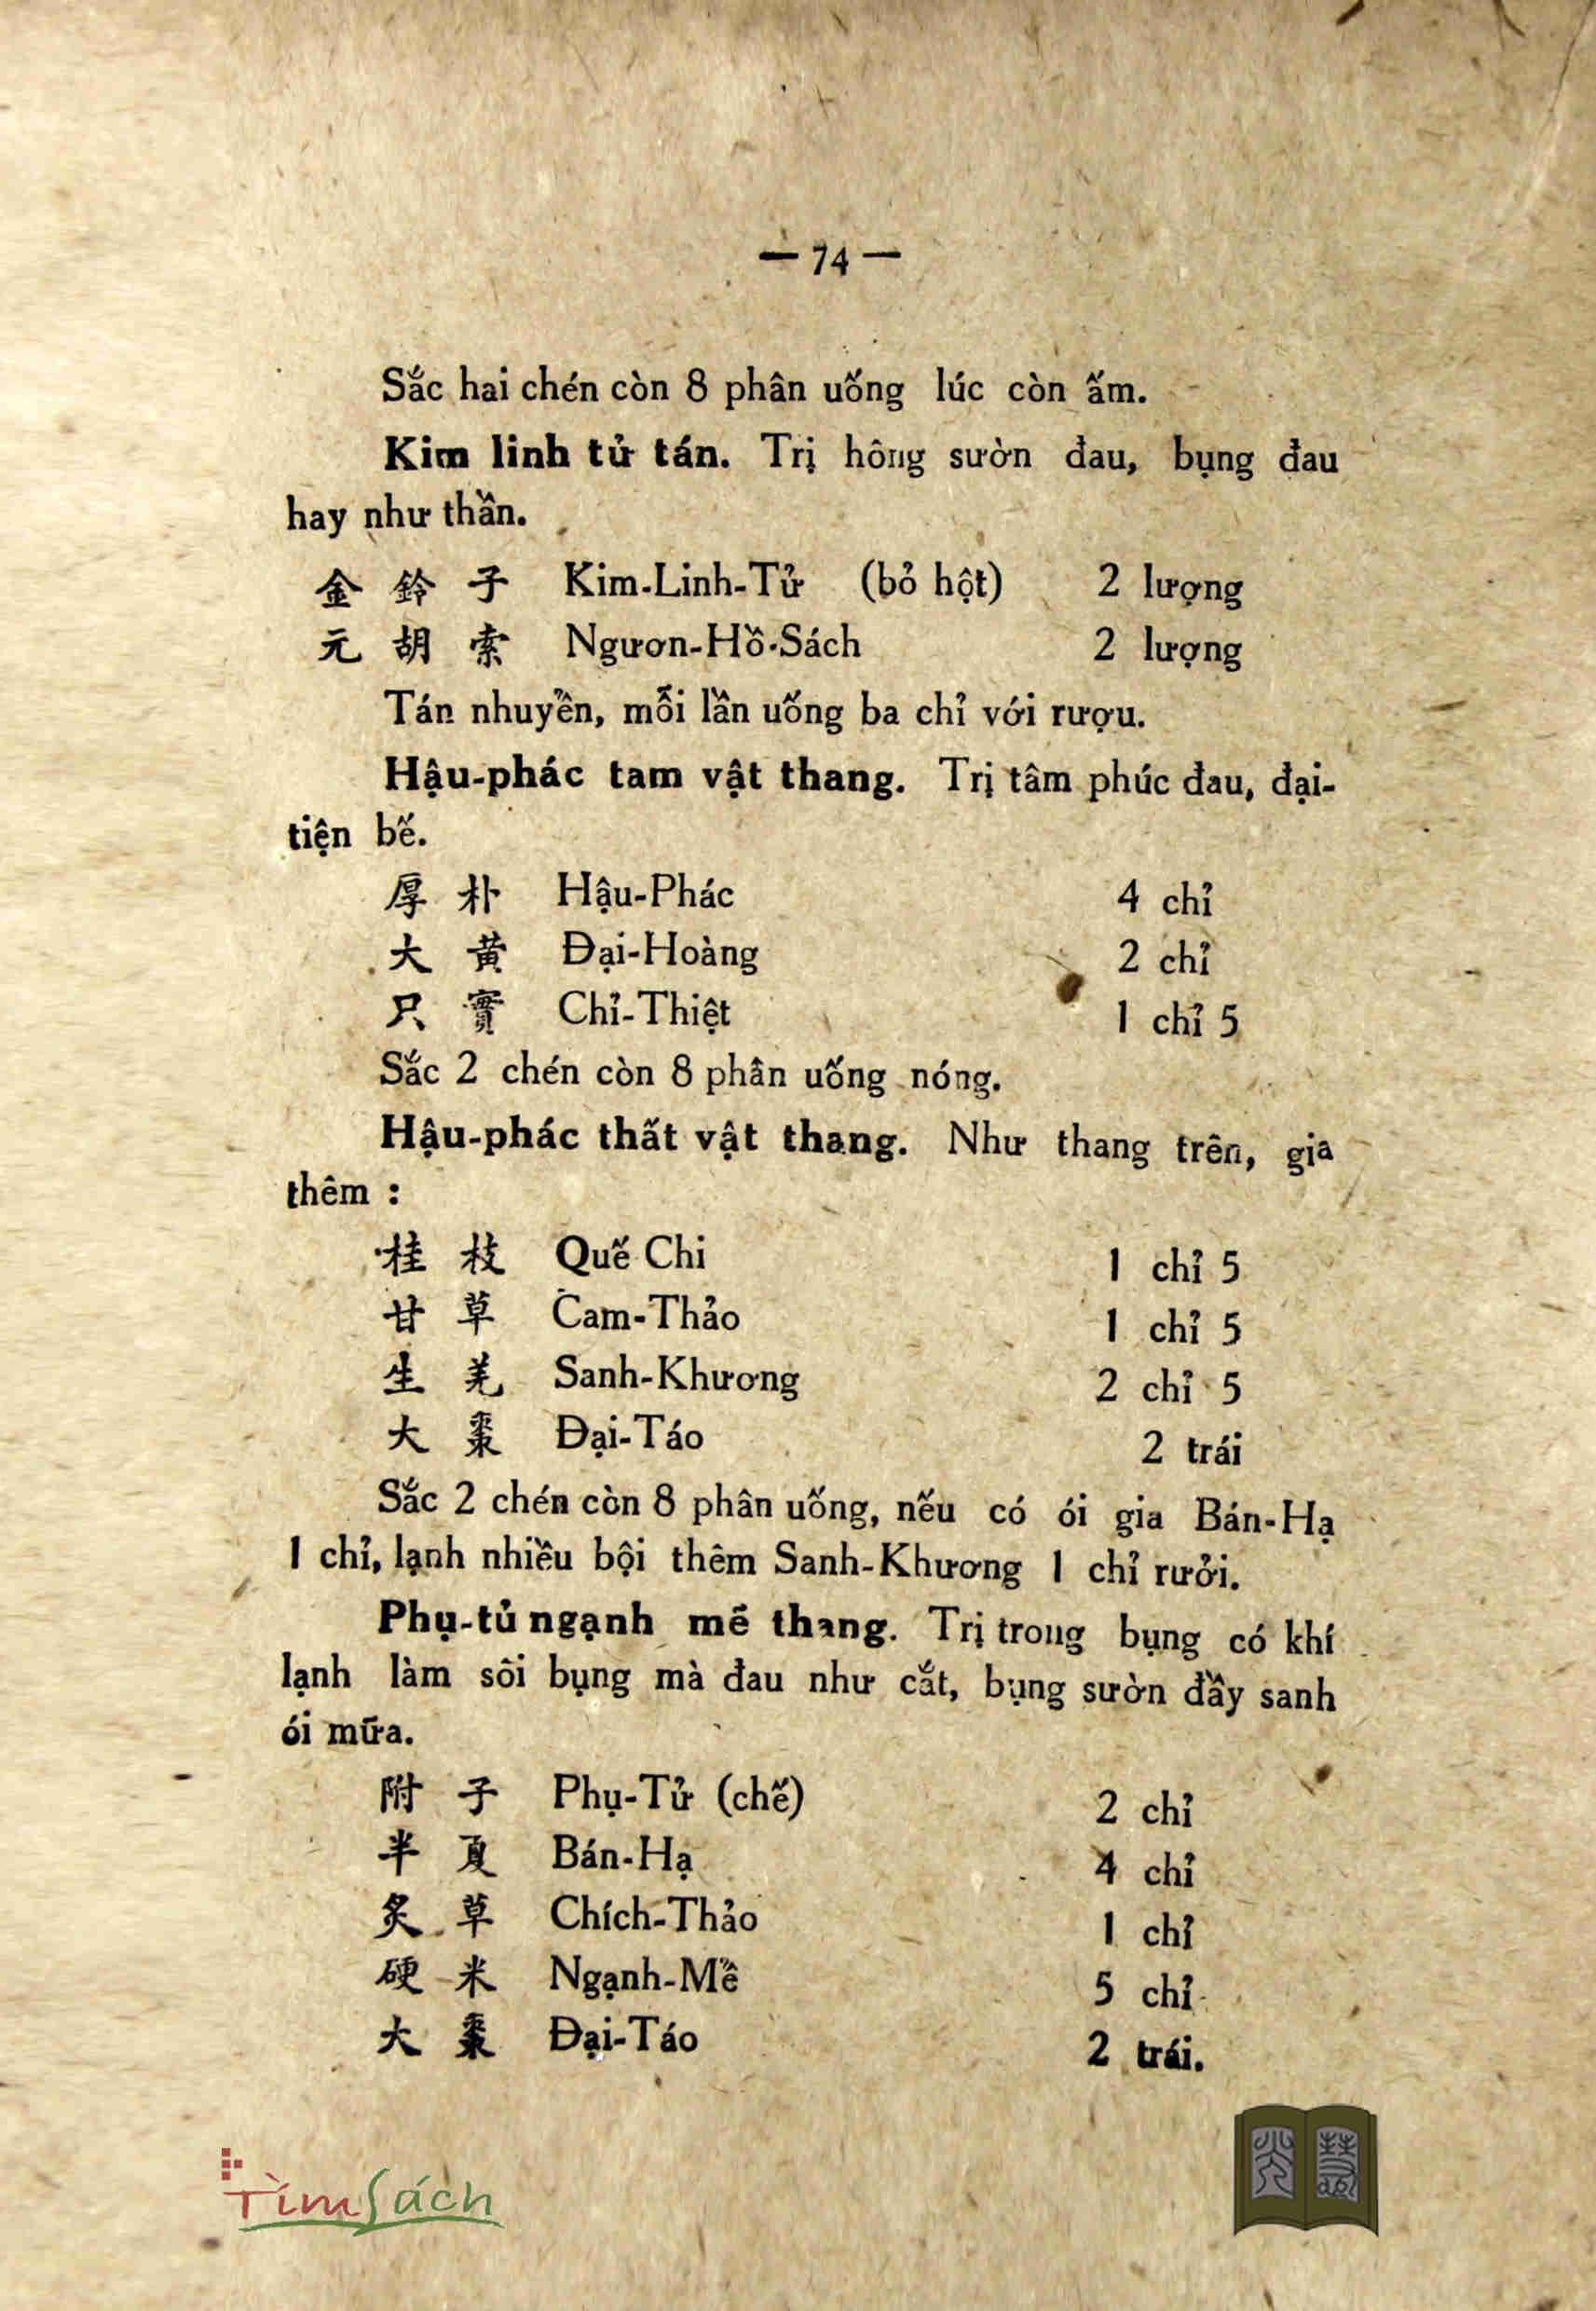 — 74 —
Sắc hai chén còn 8 phân uống lúc còn ấm.
Kim linh tử tán. Trị hông sườn đau, bụng đau
hay như thần.
金 鈴 子 Kim-Linh-Tử (bỏ hột) 2 lượng
元 胡 索 Ngươn-Hồ-Sách 2 lượng
Tán nhuyễn, mỗi lần uống ba chỉ với rượu.
Hậu-phác tam vật thang. Trị tâm phúc đau, đại-
tiện bế.
厚 朴 Hậu-Phác 4 chỉ
大 黄 Đại-Hoàng 2 chỉ
只 實 Chỉ-Thiệt 1 chỉ 5
Sắc 2 chén còn 8 phân uống nóng.
Hậu-phác thất vật thang. Như thang trên, gia
thêm :
桂 枝 Quế Chi 1 chỉ 5
甘 草 Cam-Thảo 1 chỉ 5
生 羌 Sanh-Khương 2 chỉ 5
大 棗 Đại-Táo 2 trái
Sắc 2 chén còn 8 phân uống, nếu có ói gia Bán-Hạ
1 chỉ, lạnh nhiều bội thêm Sanh-Khương 1 chỉ rưởi.
Phụ-tử ngạnh mề thang. Trị trong bụng có khí
lạnh làm sôi bụng mà đau như cắt, bụng sườn đầy sanh
ói mữa.
附 子 Phụ-Tử (chế) 2 chỉ
半 夏 Bán-Hạ 4 chỉ
炙 草 Chích-Thảo 1 chỉ
硬 米 Ngạnh-Mề 5 chỉ
大 棗 Đại-Táo 2 trái.
TìmSách